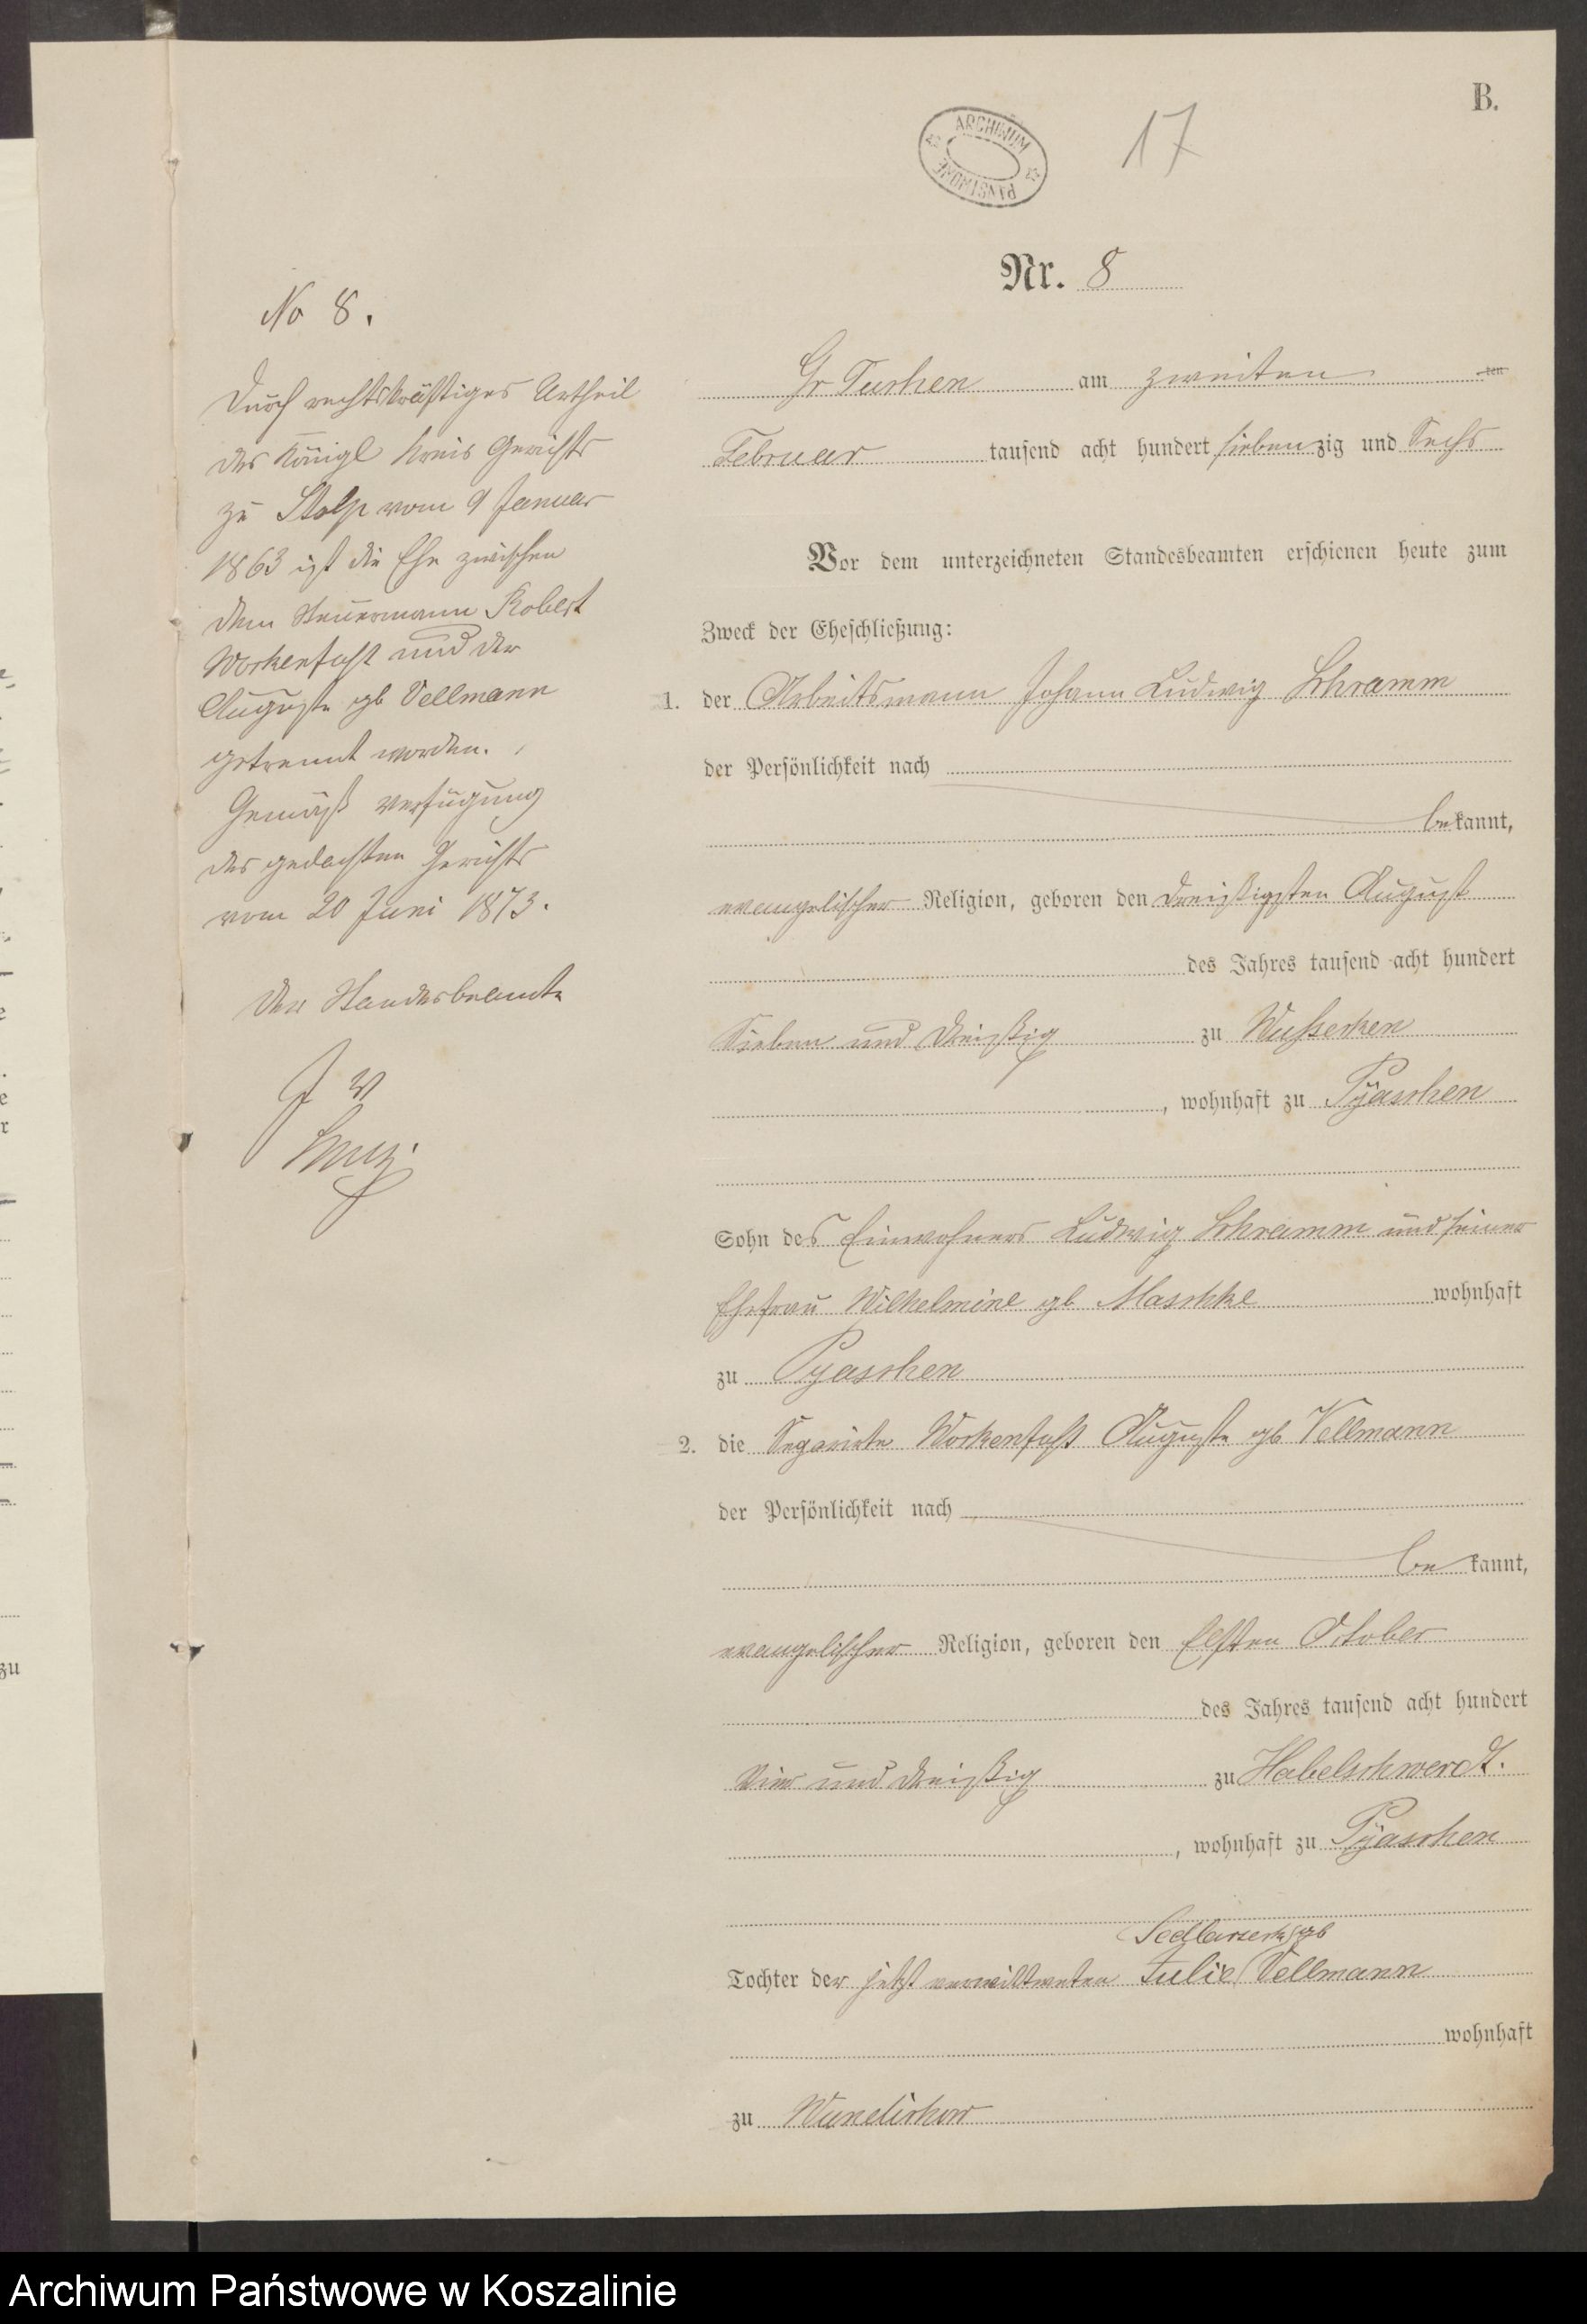 B.
ARCHIWUM PAŃSTWOWE
17
Nr. 8
Gr Tuchen am zweiten ten
Februar tausend acht hundert siebenzig und Sechs
Vor dem unterzeichneten Standesbeamten erschienen heute zum
Zweck der Eheschließung:
1. der Arbeitsmann Johann Ludwig Schramm
der Persönlichkeit nach
bekannt,
evangelischer Religion, geboren den dreißigsten August
des Jahres tausend acht hundert
Sieben und dreißig zu Wusseken
, wohnhaft zu Pyaschen
Sohn des Einwohners Ludwig Schramm und seiner
Ehefrau Wilhelmine gb Maschke wohnhaft
zu Pyaschen
2. die Separirte Workenfust Auguste gb Vellmann
der Persönlichkeit nach
bekannt,
evangelischer Religion, geboren den Elften October
des Jahres tausend acht hundert
Vier und dreißig zu Habelschwerdt.
, wohnhaft zu Pyaschen
gb
Tochter der jetzt verwittweten Julie Vellmann
wohnhaft
zu Wundichow
No 8.
Durch rechtskräftiges Urtheil
des Königl Kreis Gerichts
zu Stolp vom 9 Januar
1863 ist die Ehe zwischen
dem Steuermann Robert
Workenfust und der
Auguste gb Vellmann
getrennt worden.
Gemäß Verfügung
des gedachten Gerichts
vom 20 Juni 1873.
Der Standesbeamte
J V
e
r
zu
Archiwum Państwowe w Koszalinie